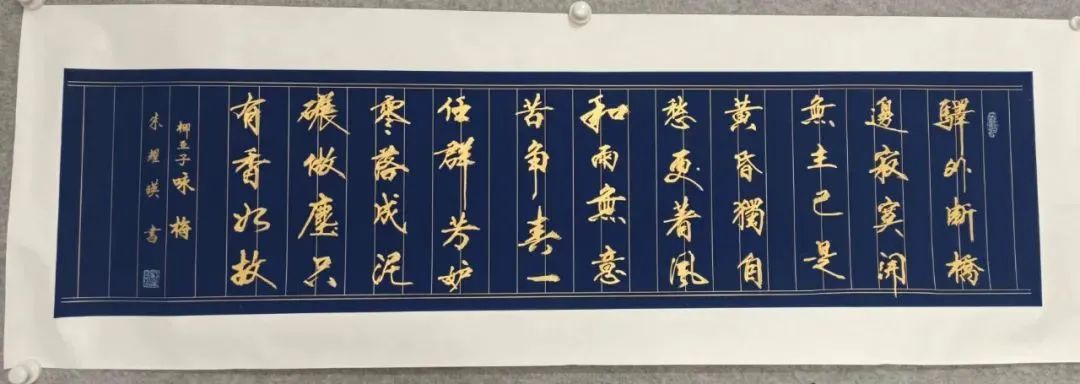 驛外斷橋
邊寂寞開
無主已是
黃昏獨自
愁更著風
和雨無意
苦爭春一
任群芳妒
零落成泥
碾做塵只
有香如故
柳亞子咏梅
朱耀瑛書